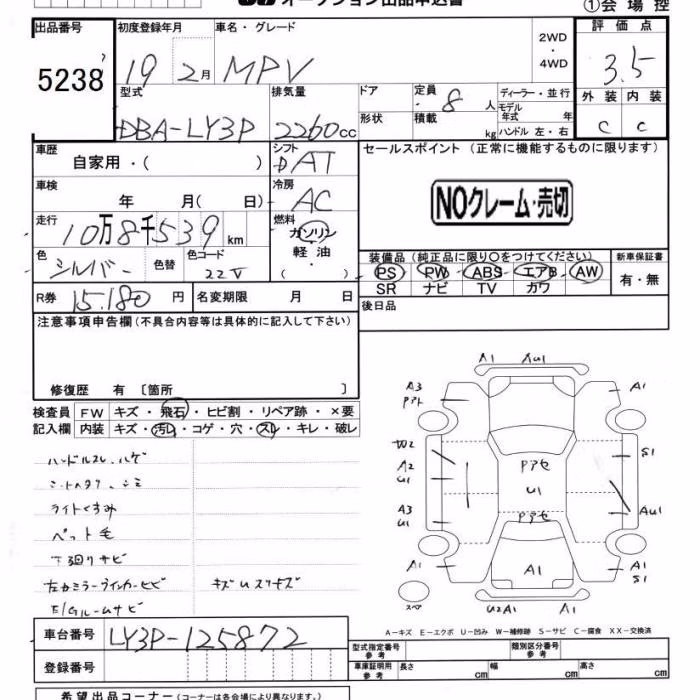 オークション出品申込書 ①会場控
出品番号 初度登録年月 車名・グレード 2WD ・ 4WD 評価点
5238 19 2月 MPV 3.5
型式 排気量 ドア 定員 8人 ディーラー・並行 外装 内装
DBA-LY3P 2260cc 形状 積載 kg モデル年式 年 ハンドル 左・右 C C
車歴 自家用・( ) シフト DAT セールスポイント (正常に機能するものに限ります)
車検 年 月( 日) 冷房 AC
NOクレーム・売切
走行 10万8千539km 燃料 ガソリン・軽油・( )
色 シルバー 色替 色コード 22V
装備品 (純正品に限り○をつけてください) 新車保証書
PS PW ABS エアB AW 有・無
SR ナビ TV カワ
R券 15.180円 名変期限 月 日 後日品
注意事項申告欄(不具合内容等は具体的に記入して下さい)
修復歴 有 〔箇所 〕
検査員 FW キズ・飛石・ヒビ割・リペア跡・×要
記入欄 内装 キズ・汚レ・コゲ・穴・スレ・キレ・破レ
ハンドルスレ、ハゲ
シートヘタリ、シミ
ライトくすみ
ペット毛
下回りサビ
左ドアミラーウインカーヒビ キズUスリキズ
E/Gルームサビ
A1 AU1
A3 A1
アト
W2 S1
A2
U1
Pアセ
U1
A3 AU1
U1
Pアセ
A1 A1 A1
S1
スペア U2A1 U1
A-キズ E-エクボ U-凹み W-補修跡 S-サビ C-腐食 XX-交換済
車台番号 LY3P-125872
登録番号
型式指定番号 参考 類別区分番号 参考
車庫証明用 参考 長さ cm 幅 cm 高さ cm
希望出品コーナー (コーナーは各会場により異なります。)